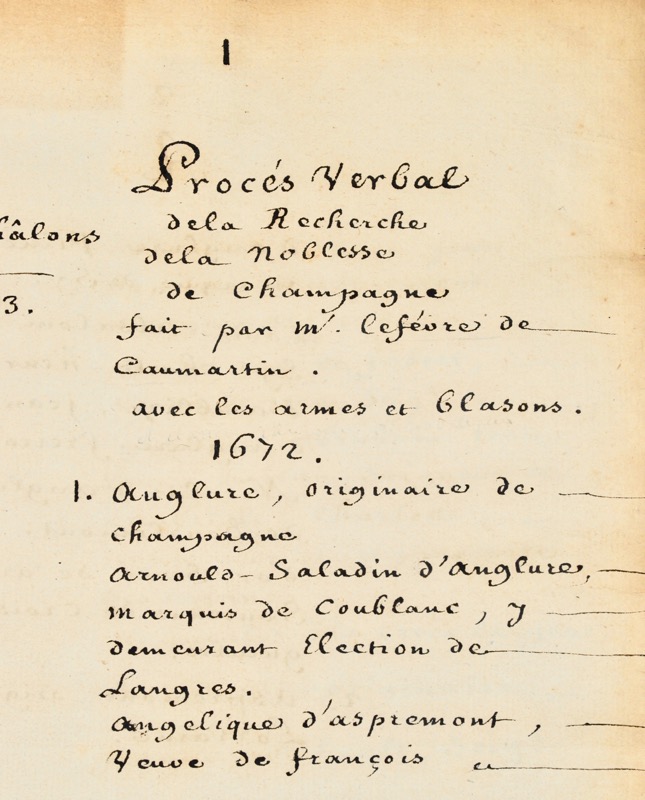 1
Procés Verbal
dela Recherche
hâlons
dela Noblesse
de Champagne
3.
fait par mr. lefévre de
Caumartin .
avec les armes et blasons .
1672 .
1. Anglure , originaire de
Champagne
Arnould-Saladin d'Anglure,
Marquis de Coublanc , y
demeurant Election de
Langres.
Angelique d'aspremont ,
Veuve de françois